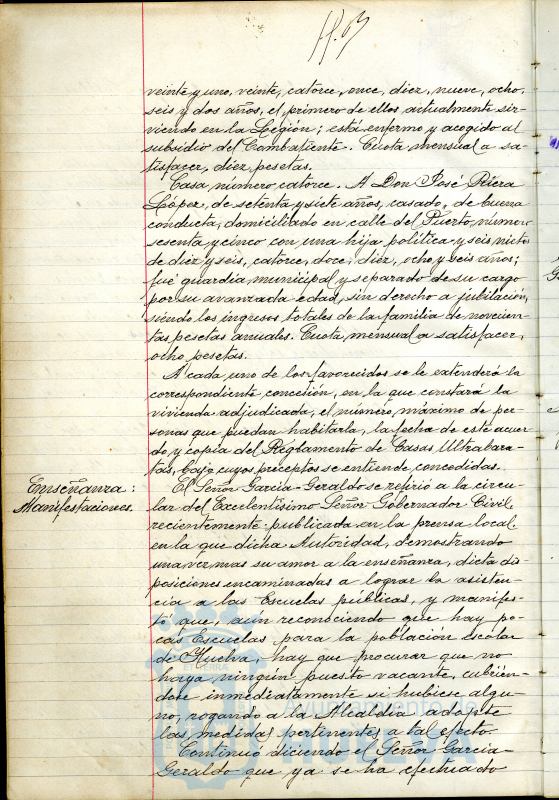 veinte y uno, veinte, catorce, once, diez, nueve, ocho,
seis y dos años, el primero de ellos actualmente sir-
viendo en la Legión; está enfermo y acogido al
subsidio del Combatiente. Cuota mensual a sa-
tisfacer, diez pesetas.
Casa número catorce. A Don José Riera
López, de setenta y siete años, casado, de buena
conducta, domiciliado en calle del Puerto, número
sesenta y cinco con una hija política y seis nietos
de diez y seis, catorce, doce, diez, ocho y seis años;
fué guardia municipal y separado de su cargo
por su avanzada edad, sin derecho a jubilación,
siendo los ingresos totales de la familia de novecien-
tas pesetas anuales. Cuota mensual a satisfacer,
ocho pesetas.
A cada uno de los favorecidos se le extenderá la
correspondiente concesión, en la que constará la
vivienda adjudicada, el número máximo de per-
sonas que puedan habitarla, la fecha de este acuer-
do y copia del Reglamento de Casas Ultrabara-
tas, bajo cuyos preceptos se entiende concedidas.
Enseñanza:
Manifestaciones.
El Señor García-Geraldo se refirió a la circu-
lar del Excelentísimo Señor Gobernador Civil,
recientemente publicada en la prensa local
en la que dicha Autoridad, demostrando
una vez mas su amor a la enseñanza, dicta dis-
posiciones encaminadas a lograr la asisten-
cia a las Escuelas públicas, y manifes-
tó que, aun reconociendo que hay po-
cas Escuelas para la población escolar
de Huelva, hay que procurar que no
haya ningún puesto vacante, cubrién-
dose inmediatamente si hubiese algu-
no, rogando a la Alcaldía adopte
las medidas pertinentes a tal efecto.
Continuó diciendo el Señor García-
Geraldo que ya se ha efectuado
Ayuntamiento de
HUELVA